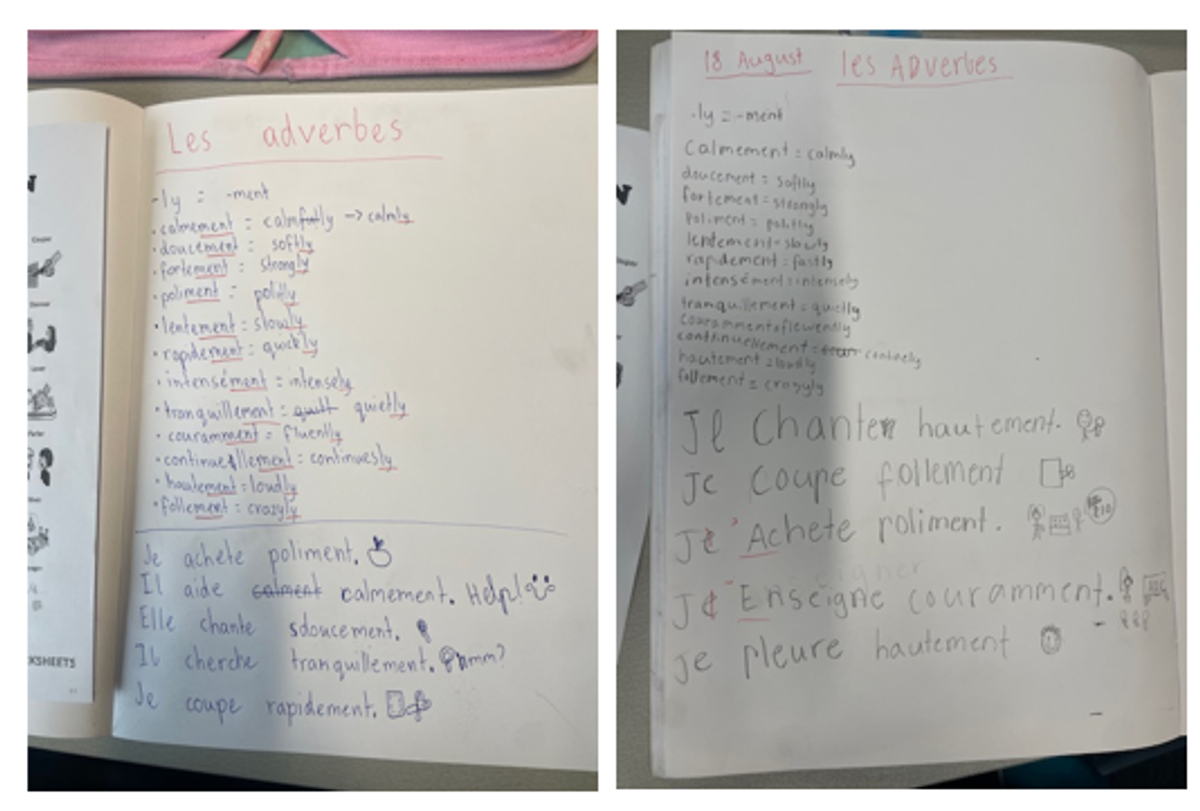 Les adverbes
-ly = -ment
• calmement = calmfully -> calmly
• doucement = softly
• fortement = strongly
• poliment = politly
• lentement = slowly
• rapidement = quickly
• intensément = intensely
• tranquillement = quitt quietly
• couramment = fluently
• continuellement = continuesly
• hautement = loudly
• follement = crazyly
Je achete poliment.
Il aide calment calmement. Help!
Elle chante doucement.
Il cherche tranquillement. hmm?
Je coupe rapidement.
KSHEETS
18 August les ADverbes
-ly = -ment
Calmement = calmly
doucement = softly
fortement = strongly
Poliment = politly
lentement = slowly
rapidement = fastly
intensément = intensely
tranquillement = quietly
couramment = flewendly
continuellement = contnuely
hautement = loudly
follement = crazyly
Je Chante hautement.
Je Coupe follement
J' Achete poliment.
J' Enseigne couramment.
Je pleure hautement